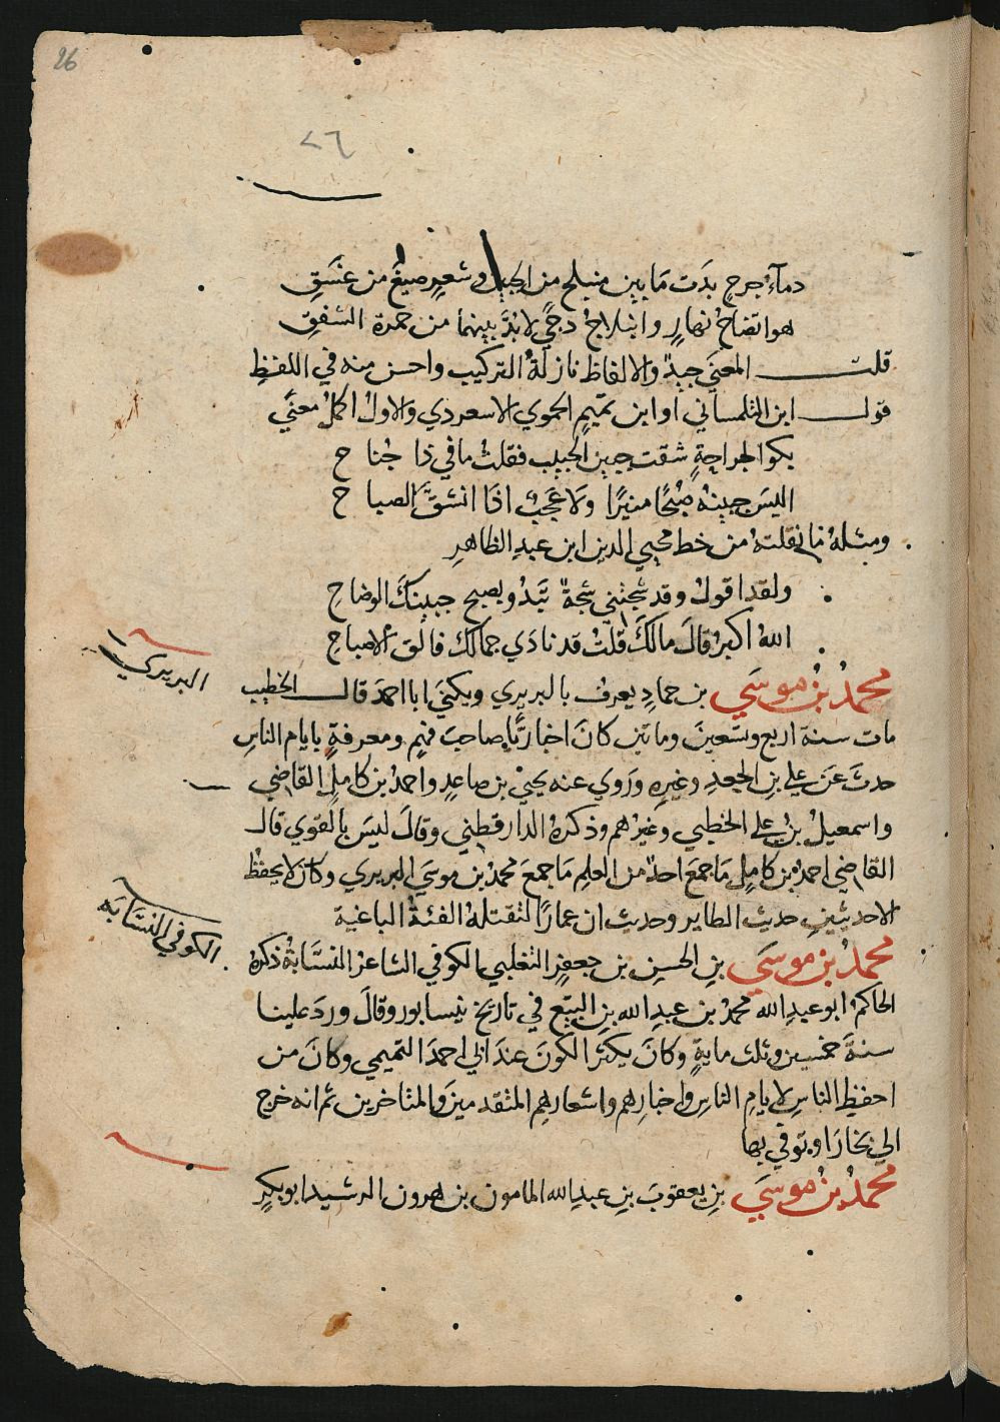 26
٢٦
دماءُ جرحٍ بدَت مَا بين منبلج من الجبين وشعرٍ صيغ من غسَقِ
هو اتضاحُ نهارٍ وانبلاجُ دجًي لابُدَّ بينهما من حمرة الشفقِ
قلت المعنَي جيدٌ والالفاظ نازلةُ التركيب واحسن منه في اللفظِ
قول ابن التلمساني او ابن تميمٍ الحموي الاسعردي والاول اكمل معنًي
بكوا لجراحةٍ شقت جبين الحبيب فقلتُ ما في ذا جُناح
اليسَ جبينهُ صُبْحًا منيرًا ولا عَجبٌ اذا انشقَّ الصباح
ومثلهُ ما نقلتهُ من خط محيي الدين ابن عبد الظاهرِ
ولقد اقولُ وقد شجتني شجةٌ تبَدُو بصبح جبينكَ الوضاحِ
اللهُ اكبرُ قالَ مالكَ قلتُ قد نادَي جمالكَ فالق الاصباحِ
البربري
محمدُ بنُ موسَي بن حمادٍ يعرف بالبربري ويكنَي ابا احمدَ قال الخطيب
مات سنة اربع وتسعينَ وماتين كانَ اخباريًّا صاحبَ فهمٍ ومعرفةٍ بايام الناسِ
حدثَ عَن علي بنِ الجعدِ وغيرِهِ ورَوي عنه يحيَي بن صاعدٍ واحمدُ بن كاملٍ القاضي
واسمعيلُ بنُ علي الخطبي وغيرُهم وذكرهُ الدارقطني وقالَ ليسَ بالقوي قال
القاضي احمدُ بن كاملٍ مَا جمعَ احدٌ من العلمِ مَا جمعَ محمدُ بن موسَي البربري وكان لا يحفظُ
الا حديثينِ حديث الطاير وحديث ان عمارًا تقتلهُ الفئةُ الباغية
الكوفي النسَّابَه
محمدُ بن موسَي بنِ الحسنِ بن جعفرٍ الثعلبي الكوفي الشاعرُ النسَّابةُ ذكرهُ
الحاكمُ ابو عبد الله محمدُ بن عبدِ الله بنِ البيِّع في تاريخ نيسابور وقالَ وردَ علينا
سنةَ خمسين وثلث مايةٍ وكانَ يكثرُ الكونَ عندَ ابي احمدَ التميمي وكانَ من
احفظِ الناسِ لايامِ الناسِ واخبارِهم واشعارِهم المتقدمينَ والمتاخرين ثم انه خرج
الي بخارَا وتوفي بها
محمدُ بنُ موسَي بنِ يعقوبَ بنِ عبدِ الله المامون بن هرون الرشيد ابو بكرٍ